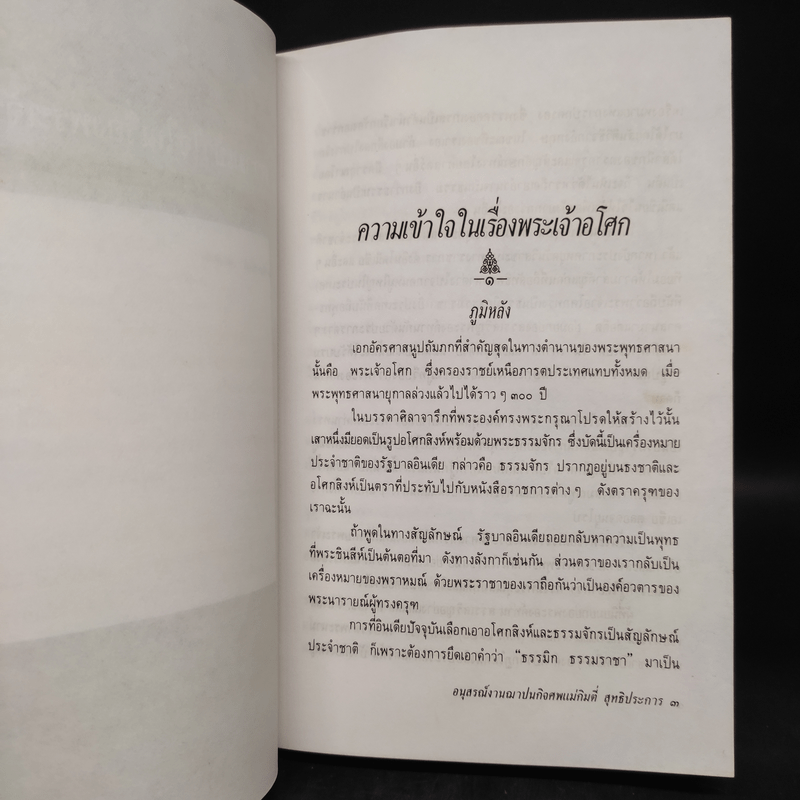 ความเข้าใจในเรื่องพระเจ้าอโศก
๑
ภูมิหลัง
เอกอัครศาสนูปถัมภกที่สำคัญสุดในทางตำนานของพระพุทธศาสนา
นั้นคือ พระเจ้าอโศก ซึ่งครองราชย์เหนือภารตประเทศแทบทั้งหมด เมื่อ
พระพุทธศาสนายุกาลล่วงแล้วไปได้ราว ๆ ๓๐๐ ปี
ในบรรดาศิลาจารึกที่พระองค์ทรงพระกรุณาโปรดให้สร้างไว้นั้น
เสาหนึ่งมียอดเป็นรูปอโศกสิงห์พร้อมด้วยพระธรรมจักร ซึ่งบัดนี้เป็นเครื่องหมาย
ประจำชาติของรัฐบาลอินเดีย กล่าวคือ ธรรมจักร ปรากฏอยู่บนธงชาติและ
อโศกสิงห์เป็นตราที่ประทับไปกับหนังสือราชการต่าง ๆ ดังตราครุฑของ
เราฉะนั้น
ถ้าพูดในทางสัญลักษณ์ รัฐบาลอินเดียถอยกลับหาความเป็นพุทธ
ที่พระชินสีห์เป็นต้นตอที่มา ดังทางลังกาก็เช่นกัน ส่วนตราของเรากลับเป็น
เครื่องหมายของพราหมณ์ ด้วยพระราชาของเราถือกันว่าเป็นองค์อวตารของ
พระนารายณ์ผู้ทรงครุฑ
การที่อินเดียปัจจุบันเลือกเอาอโศกสิงห์และธรรมจักรเป็นสัญลักษณ์
ประจำชาติ ก็เพราะต้องการยึดเอาคำว่า “ธรรมิก ธรรมราชา” มาเป็น
อนุสรณ์งานฌาปนกิจศพแม่กิมตี่ สุทธิประการ ๓